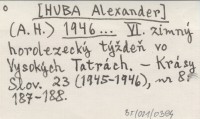 [HUBA Alexander]
(A.H.) 1946... VI. zimný
horolezecký týždeň vo
Vysokých Tatrách. – Krásy
Slov. 23 (1945-1946), nr 8:
187-188.